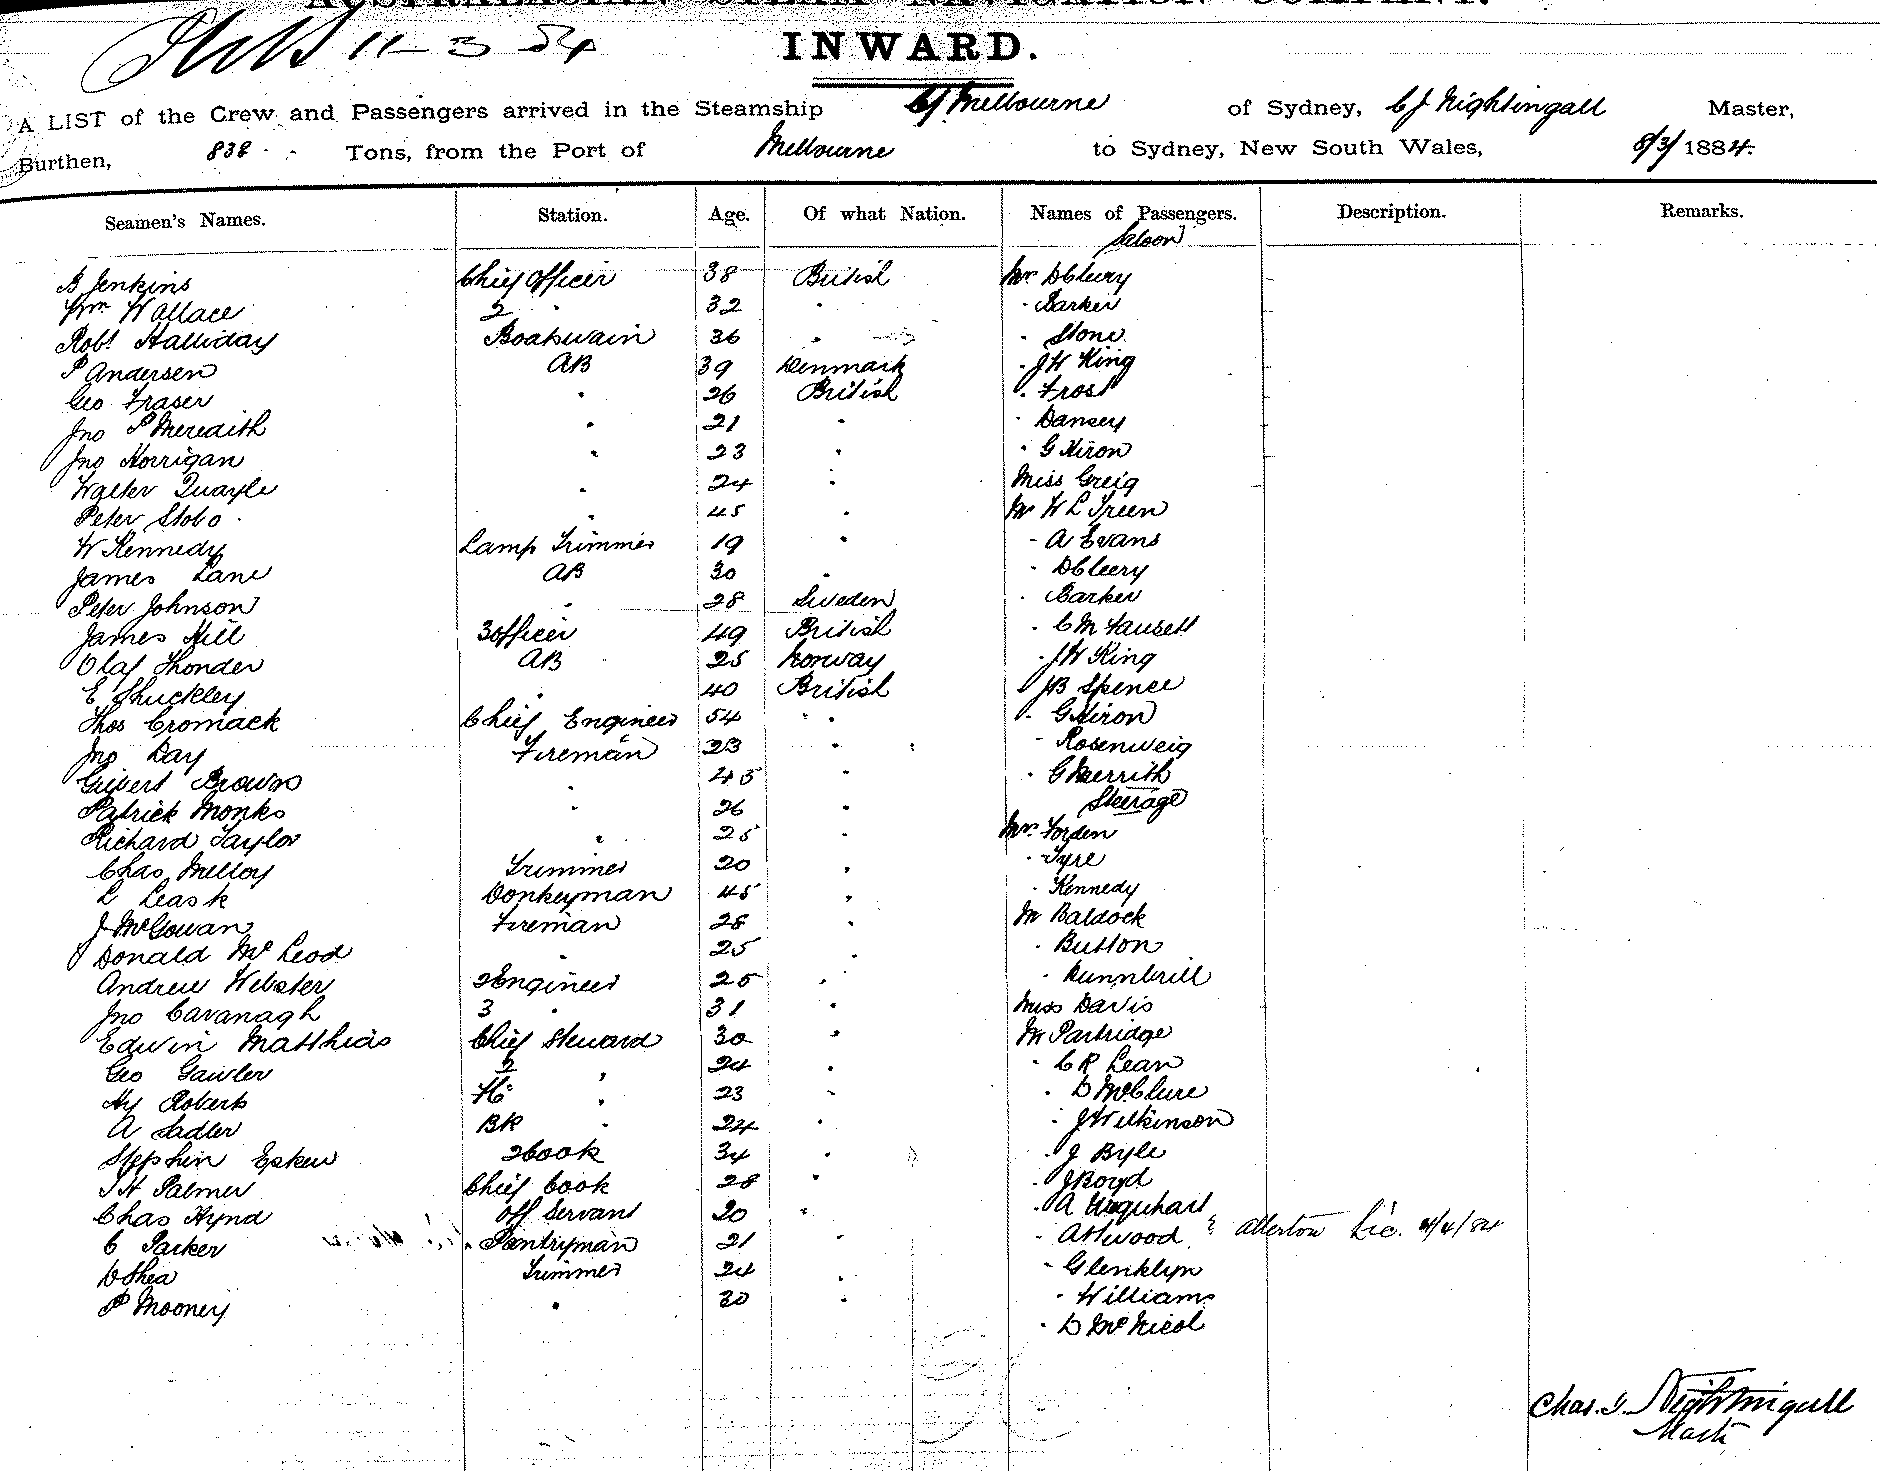 AUSTRALASIAN STEAM NAVIGATION COMPANY.
11-3 84
INWARD.
A LIST of the Crew and Passengers arrived in the Steamship Cy Melbourne of Sydney, CJ Nightingall Master,
Burthen, 838 Tons, from the Port of Melbourne to Sydney, New South Wales, 8/3/1884.
Seamen's Names. Station. Age. Of what Nation. Names of Passengers. Description. Remarks.
Saloon
B Jenkins Chief Officer 38 British Mr DCleery
Wm Wallace 2 " 32 " " Barker
Robt Halliday Boatswain 36 " " Stone
P Andersen AB 39 Denmark " JW King
Geo Fraser " 26 British " Frost
Jno P Meredith " 21 " " Dansey
Jno Horrigan " 23 " " G Hiron
Walter Quayle " 24 " Miss Greig
Peter Stobo " 45 " Mr W L Treen
W Kennedy Lamp Trimmer 19 " " A Evans
James Lane AB 30 " " DCleery
Peter Johnson " 28 Sweden " Barker
James Hill 3 Officer 49 British " C M Fausett
Olaf Thonder AB 25 Norway " JW King
E Shuckley " 40 British " JB Spence
Thos Cromack Chief Engineer 54 " " G Hiron
Jno Day Fireman 23 " " Rosenweig
Gilbert Brown " 45 " " G Merrith
Steerage
Patrick Monks " 26 "
Richard Taylor " 25 " Mr Forden
Chas Melloy Trimmer 20 " " Tyre
L Leask Donkeyman 45 " " Kennedy
J McGowan Fireman 28 " Mr Baldock
Donald McLeod " 25 " " Button
Andrew Webster 2 Engineer 25 " " Runnbrill
Jno Cavanagh 3 " 31 " Miss Davis
Edwin Matthias Chief Steward 30 " Mr Partridge
Geo Gawler 2 " 24 " " C R Lean
Hy Roberts " 23 " " D McClure
A Sadler BR " 24 " " J Wilkinson
Stephen Eskew 2 Cook 34 " " J Byle
J H Palmer Chief Cook 28 " " J Boyd
Chas Hynd Off Servant 20 " " A Urquhart
C Parker Pantryman 21 " " Attwood & Allerton Lic. 4/4/84
D Shea Trimmer 24 " " Glenklyn
P Mooney " 30 " " Williams
" D McNicol
Chas. J. Nightingall
Master